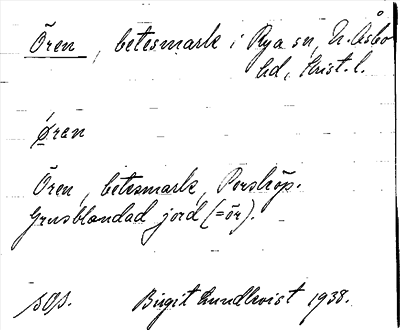 Ören, betesmark i Rya sn, N. Åsbo
hd, Krist. l.
ǿren
Ören, betesmark, Porshöp.
Grusblandad jord (=ör).
sop. Birgit Lundkvist 1938.